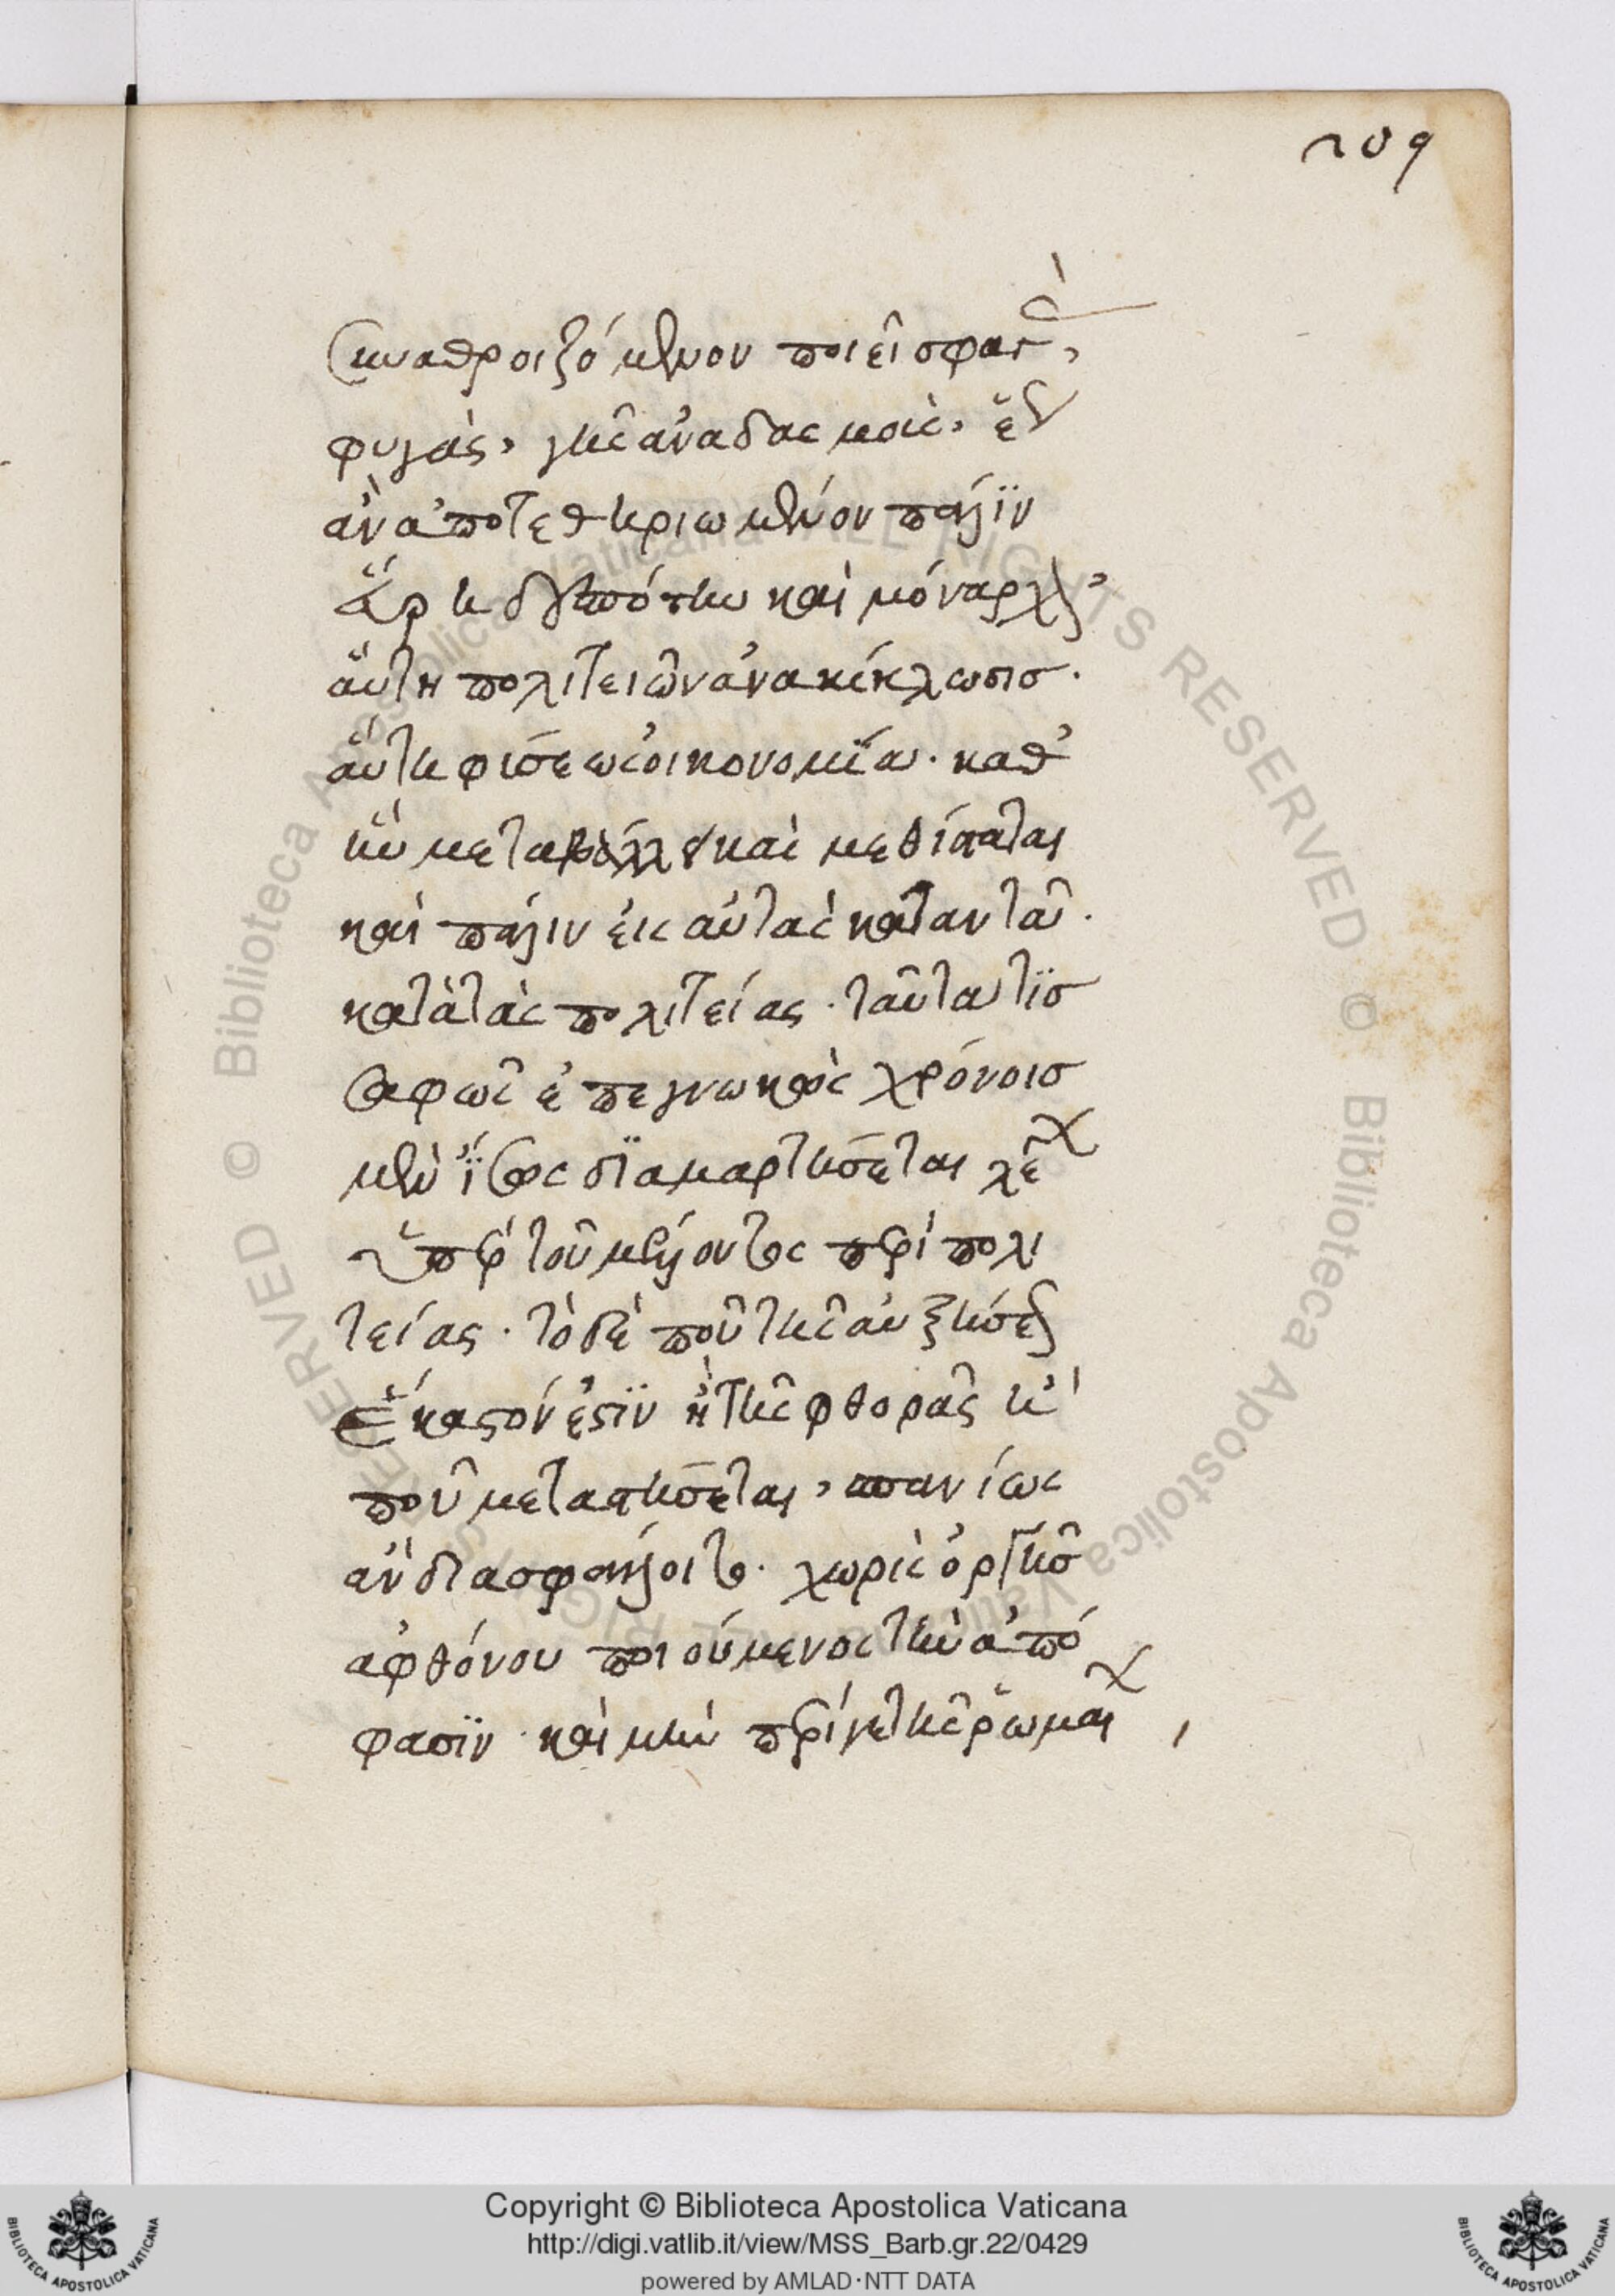 209
συναθροιζόμενον ποιεῖ σφαγὰς,
φυγὰς, γῆς ἀναδασμοὺς, ἕως
ἂν ἀποτεθηριωμένον πάλϊν
εὕρῃ δεσπότην καὶ μόναρχον
αὕτη πολιτειῶν ἀνακύκλωσισ.
αὕτη φύσεως οἰκονομΐα. καθ'
ἣν μεταβάλλει καὶ μεθίσταται
καὶ πάλιν εἰς αὑτὰς καταντᾶ.
κατὰ τὰς πολιτείας. ταῦτα τὶσ
σαφῶς ἐπεγνωκὼς χρόνοισ
μὲν ἴσως δϊαμαρτήσεται λέγων
ὑπὲρ τοῦ μέλλοντος περὶ πολι
τείας. τὸ δὲ ποῦ τῆς αὐξήσεως
ἕκαστόν ἐστϊν ἢ τῆς φθορᾶς ἢ
ποῦ μεταστήσεται, σπανίως
ἂν διασφάλλοιτο. χωρὶς ὀργῆσ
ἢ φθόνου ποιούμενος τὴν ἀπό
φασϊν. καὶ μὴν περί γε τῆς ῥωμαί
Copyright © Biblioteca Apostolica Vaticana
http://digi.vatlib.it/view/MSS_Barb.gr.22/0429
powered by AMLAD·NTT DATA